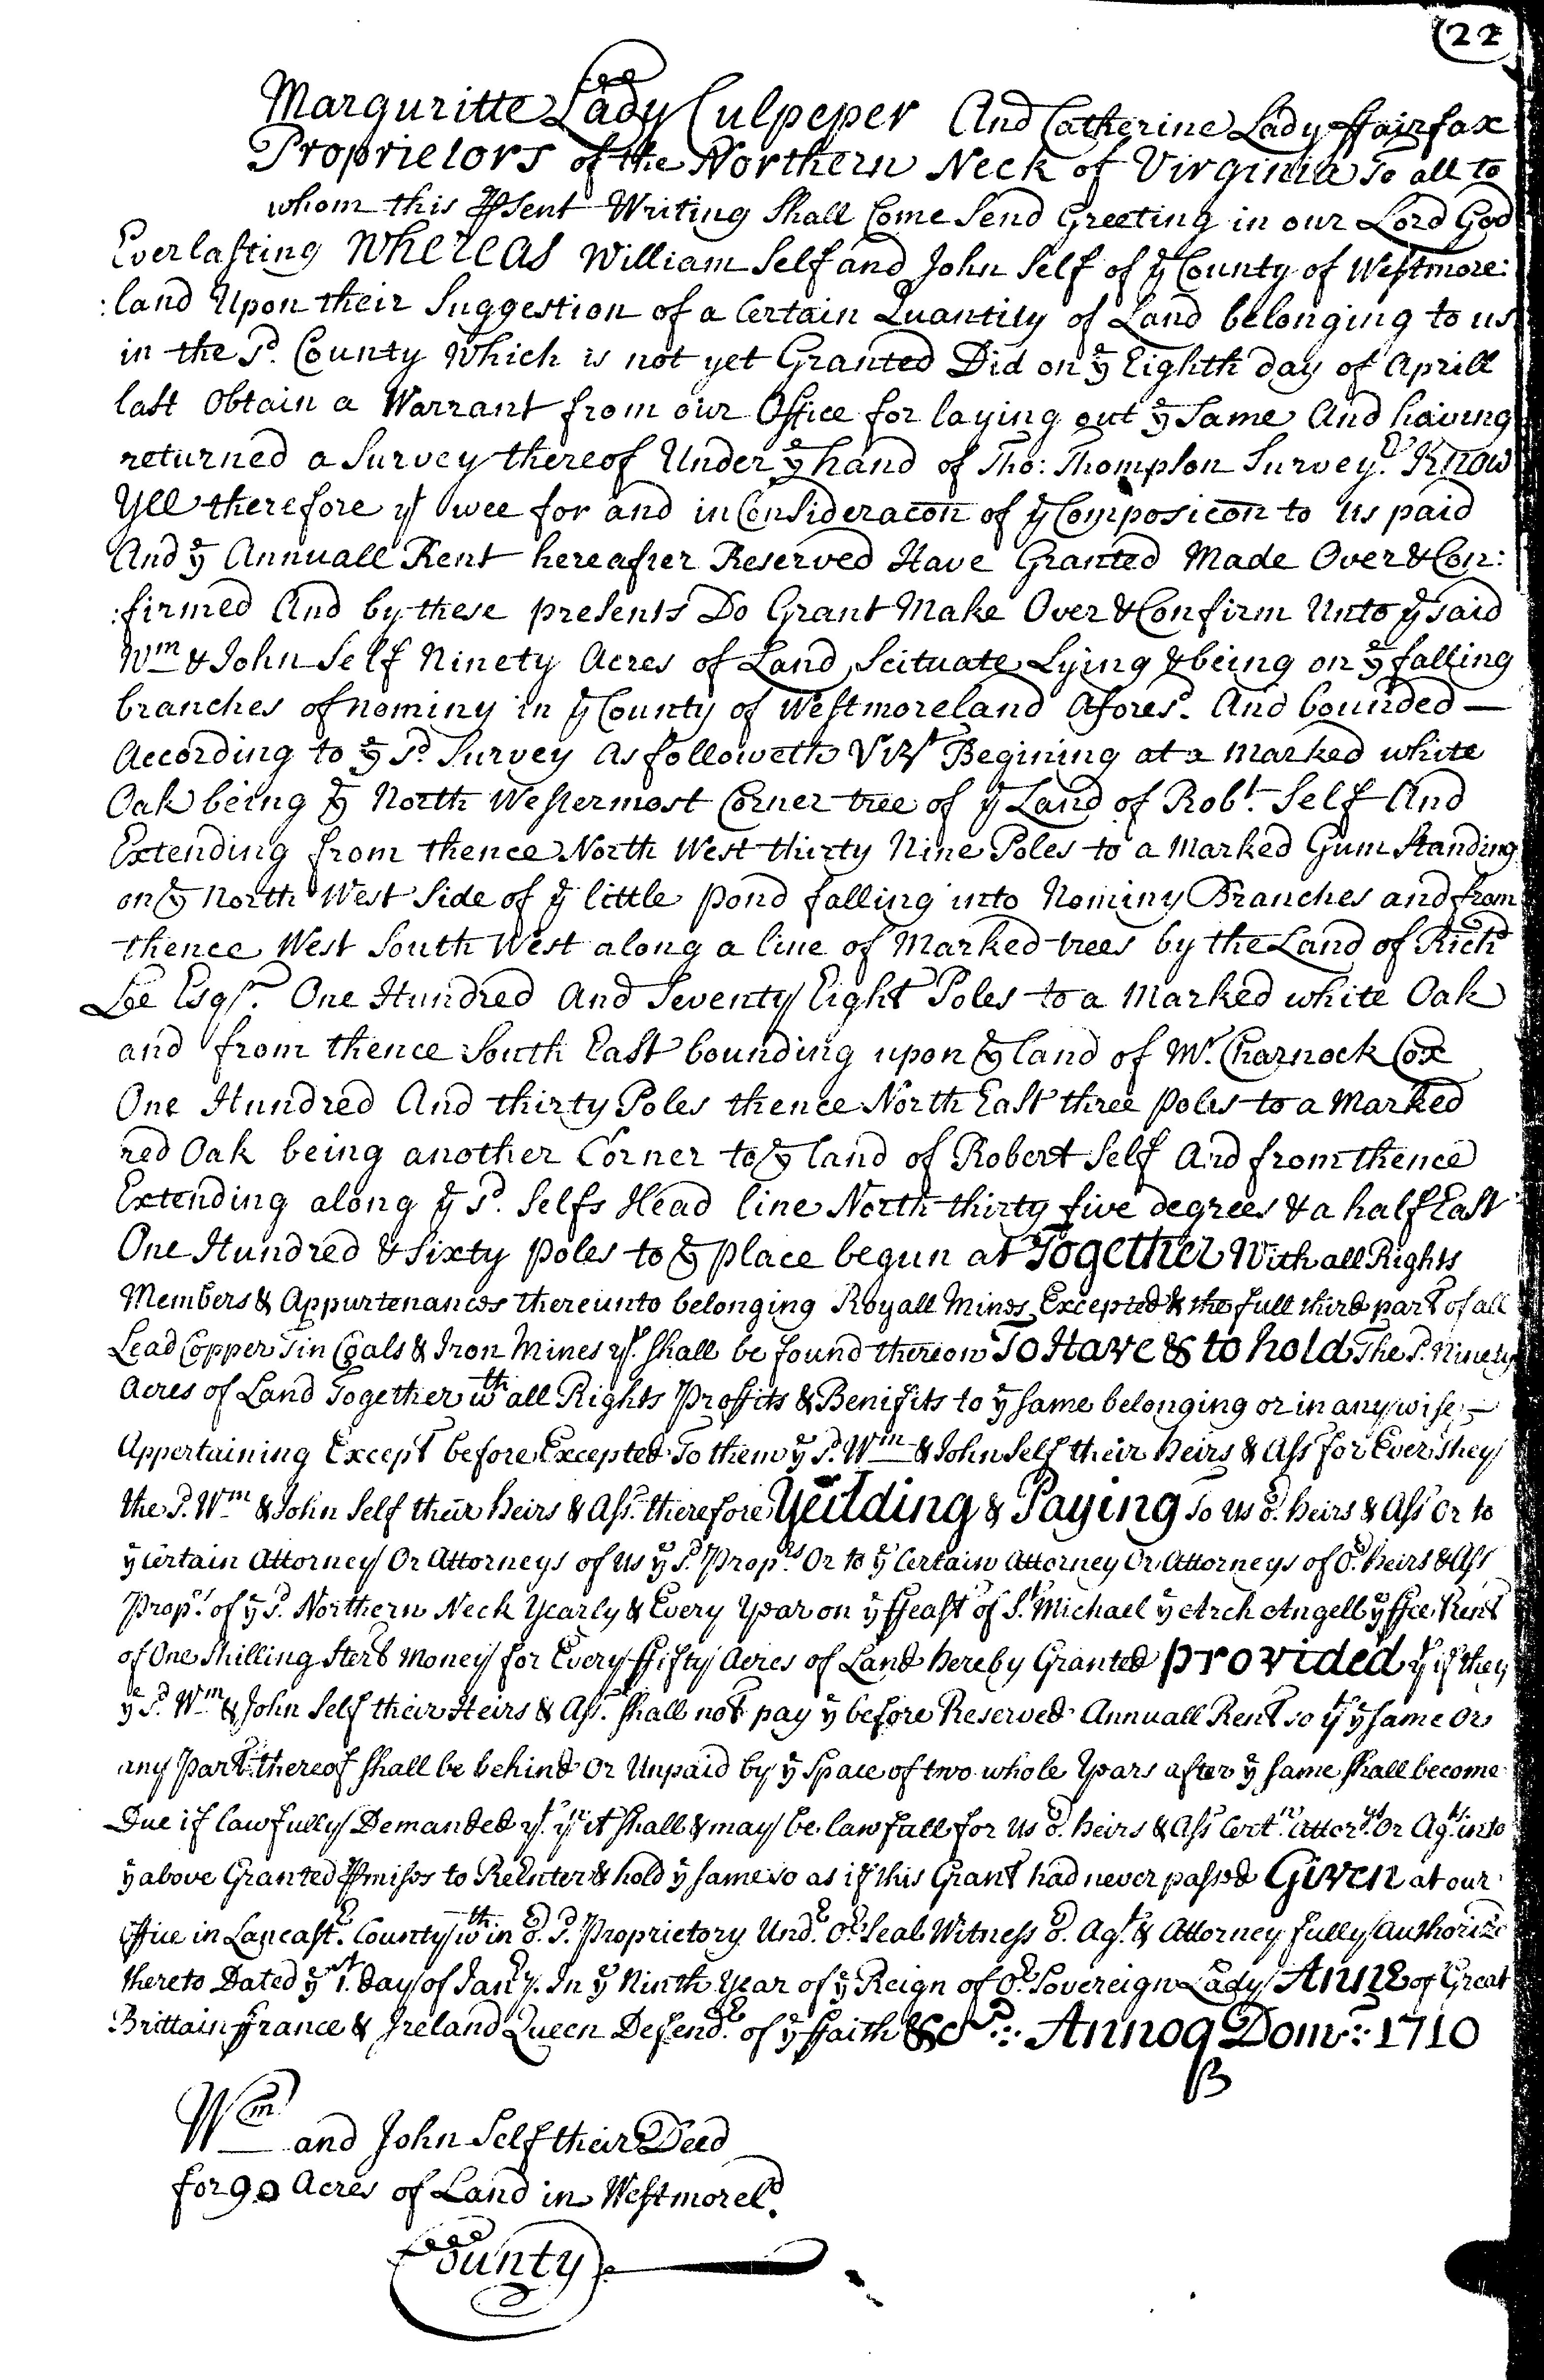 22
Marguritte Lady Culpeper And Catherine Lady ffairfax
Proprietors of the Northern Neck of Virginia To all to
whom this Psent Writing Shall Come Send Greeting in our Lord God
Everlasting Whereas William Self and John Self of ye County of Westmore:
:land Upon their Suggestion of a Certain Quantity of Land belonging to us
in the sd. County Which is not yet Granted Did on ye Eighth day of Aprill
last Obtain a Warrant from our Office for laying out ye Same And having
returned a Survey thereof Under ye hand of Tho: Thompson Surveyr. Know
Yee therefore yt wee for and in Consideracon of ye Composicon to Us paid
And ye Annuall Rent hereafter Reserved Have Granted Made Over & Con:
:firmed And by these presents Do Grant Make Over & Confirm Unto ye said
Wm & John Self Ninety Acres of Land Scituate Lying & being on ye falling
branches of nominy in ye County of Westmoreland Aforesd. And bounded —
According to ye sd. Survey As followeth Vizt Begining at a Marked white
Oak being ye North Westermost Corner tree of ye Land of Robt. Self And
Extending from thence North West thirty Nine Poles to a Marked Gum Standing
on ye North West Side of ye little pond falling into Nominy Branches and from
thence West South West along a line of Marked trees by the Land of Richd
Lee Esqr. One Hundred And Seventy Eight Poles to a Marked white Oak
and from thence South East bounding upon ye land of Mr. Charnock Cox
One Hundred And thirty Poles thence North East three Poles to a Marked
red Oak being another Corner to ye land of Robert Self And from thence
Extending along ye sd. Selfs Head line North thirty five degrees & a half East
One Hundred & Sixty poles to ye place begun at Together With all Rights
Members & Appurtenances thereunto belonging Royall Mines Excepted & the full third part of all
Lead Copper Tin Coals & Iron Mines yt. shall be found thereon To Have & to hold The sd. Ninety
Acres of Land Together wth all Rights Proffits & Benifits to ye same belonging or in any wise —
Appertaining Except before Excepted To them ye sd. Wm & John Self their heirs & Ass for Ever They
the sd. Wm & John Self their heirs & Ass. therefore Yeilding & Paying To Us or. heirs & Ass Or to
ye Certain Attorney Or Attorneys of us ye sd. Proprs. Or to ye Certain Attorney Or Attorneys of Or. heirs & Ass
Proprs. of ye sd. Northern Neck Yearly & Every Year on ye ffeast of St. Michael ye Arch Angell ye ffee Rent
of One shilling Sterl Money for Every ffifty Acres of Land hereby Granted Provided yt if they
ye sd. Wm & John Self their Heirs & Ass. shall not pay ye before Reserved Annuall Rent so yt ye same Or
any Part thereof shall be behind Or Unpaid by ye Space of two whole Years after ye same shall become
Due if lawfully Demanded yt. yn it shall & may be lawfull for Us or. heirs & Ass Certn. Attorys. Or Agts. into
ye above Granted Pmises to ReEnter & hold ye same so as if this Grant had never passed Given at our
Office in Lancastr. County wthin or. sd. Proprietory Undr. Or. Seal Witness or. Agt. & Attorney fully Authorized
thereto Dated ye 1st. day of Janry. In ye Ninth Year of ye Reign of Or. Sovereign Lady Anne of Great
Brittain ffrance & Ireland Queen Defendr. of ye ffaith &c. Annoq Dom: 1710
Wm and John Self their Deed
for 90 Acres of Land in Westmoreld.
County